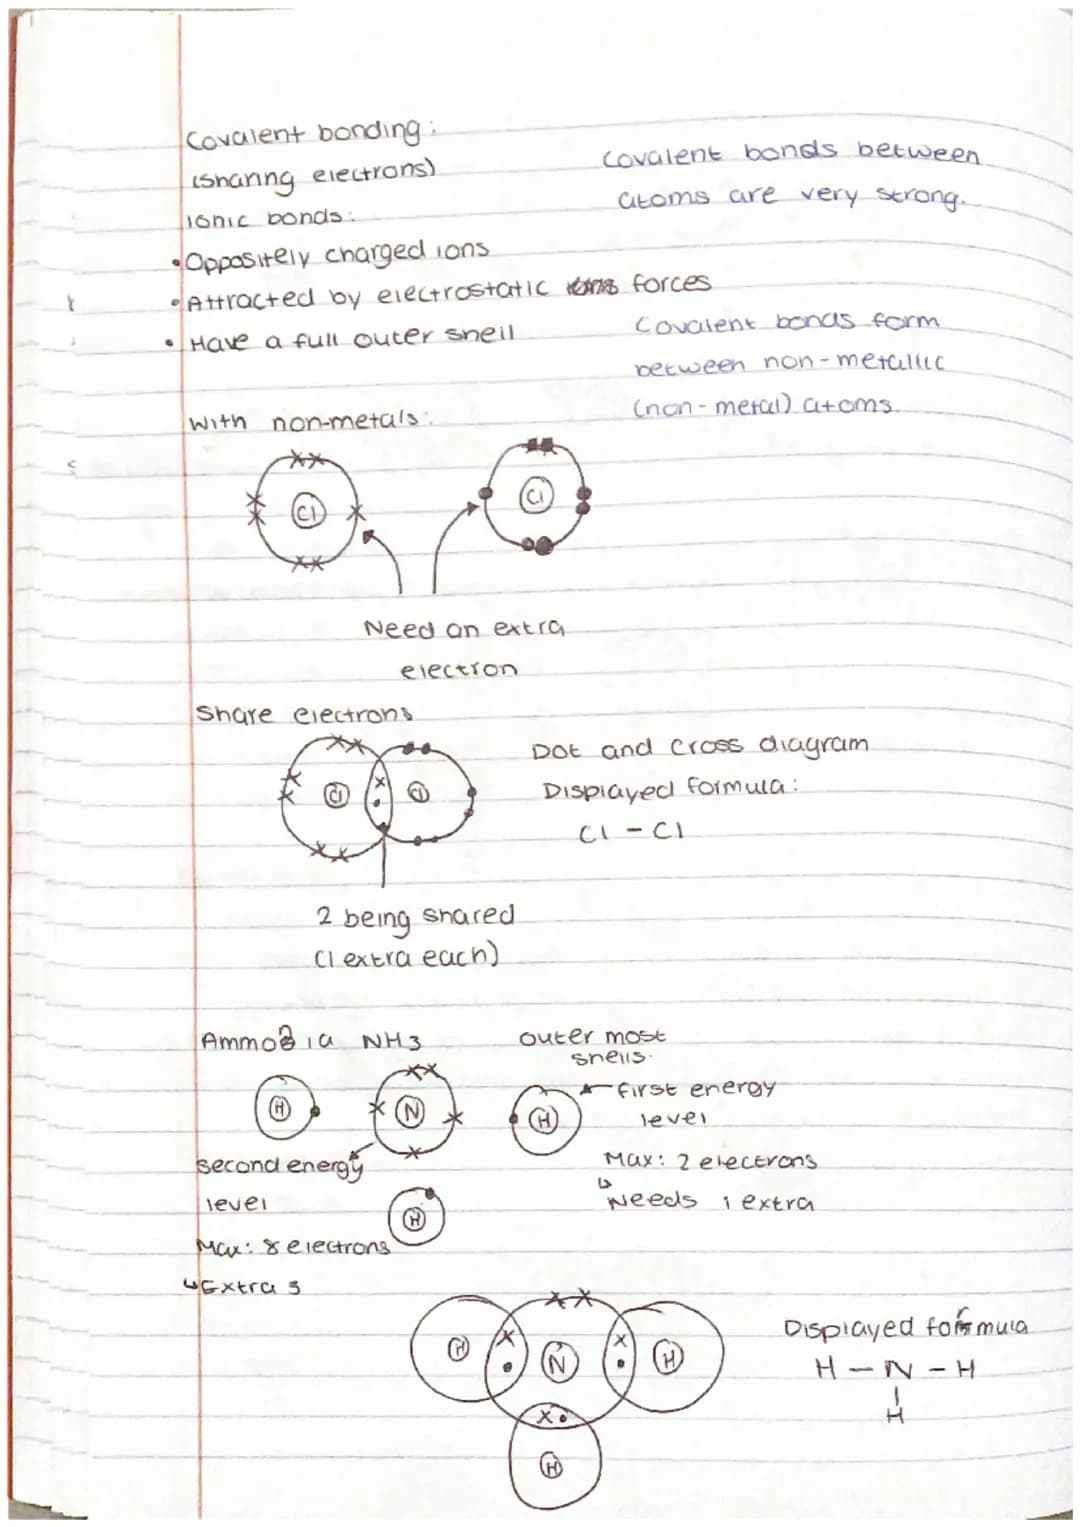 Covalent bonding:
(sharing electrons)
Covalent bonds between
atoms are very strong.
Ionic bonds:
• Oppositely charged ions
• Attracted by electrostatic forces
• Have a full outer shell
Covalent bonds form
between non-metallic
(non-metal) atoms.
With non-metals:
Cl
Cl
Need an extra
electron
Share electrons
Cl
Cl
Dot and cross diagram
Displayed formula:
Cl - Cl
2 being shared
(1 extra each)
Ammonia NH3
outer most
shells.
H
N
H
first energy
level
second energy
level
Max: 2 electrons
↳ Needs 1 extra
H
Max: 8 electrons
↳ Extra 3
H
N
H
H
Displayed formula
H - N - H
|
H